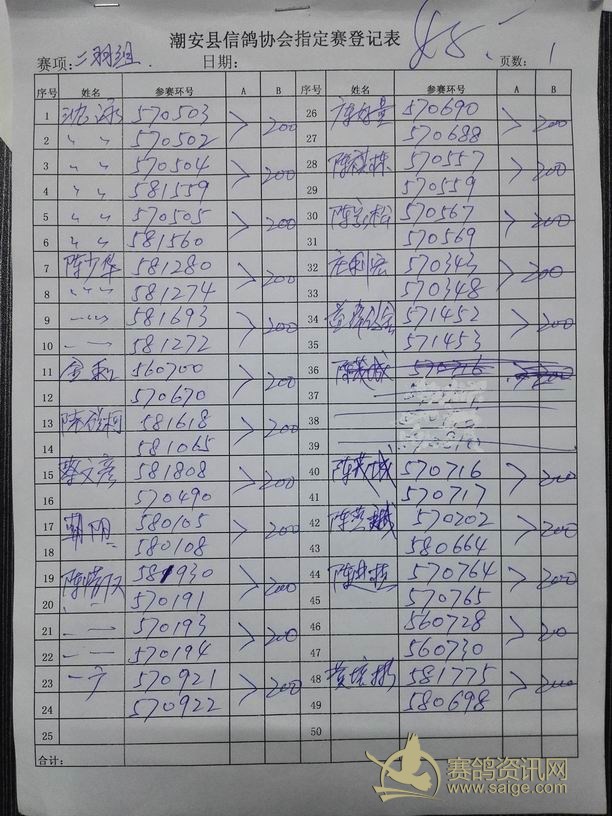 潮安县信鸽协会指定赛登记表
赛项: 二羽组. 日期: 页数: 1
序号 姓名 参赛环号 A B 序号 姓名 参赛环号 A B
1 沈泳 570503 > 200 26 570690 > 200
2 〃 〃 570502 27 570688
3 〃 〃 570504 > 200 28 陈祺栋 570557 > 200
4 〃 〃 581559 29 570559
5 〃 〃 570505 > 200 30 陈 松 570567 > 200
6 〃 〃 581560 31 570569
7 陈少华 581280 > 200 32 利宏 570343 > 200
8 〃 〃 〃 581274 33 570348
9 581693 > 200 34 571452 > 200
10 581272 35 571453
11 560700 > 200 36 陈茂城 570716 200
12 570670 37
13 陈 581618 > 200 38
14 581065 39
15 蔡文彦 581808 > 200 40 陈茂城 570716 > 200
16 570490 41 570717
17 朝阳 580105 > 200 42 陈 570202 > 200
18 580108 43 580664
19 陈 581930 > 200 44 陈 570764 > 200
20 570191 45 570765
21 570193 > 200 46 560728 > 200
22 570194 47 560730
23 570921 > 200 48 黄 581775 > 200
24 570922 49 580698
25 50
合计:
赛鸽资讯网
www.saige.com